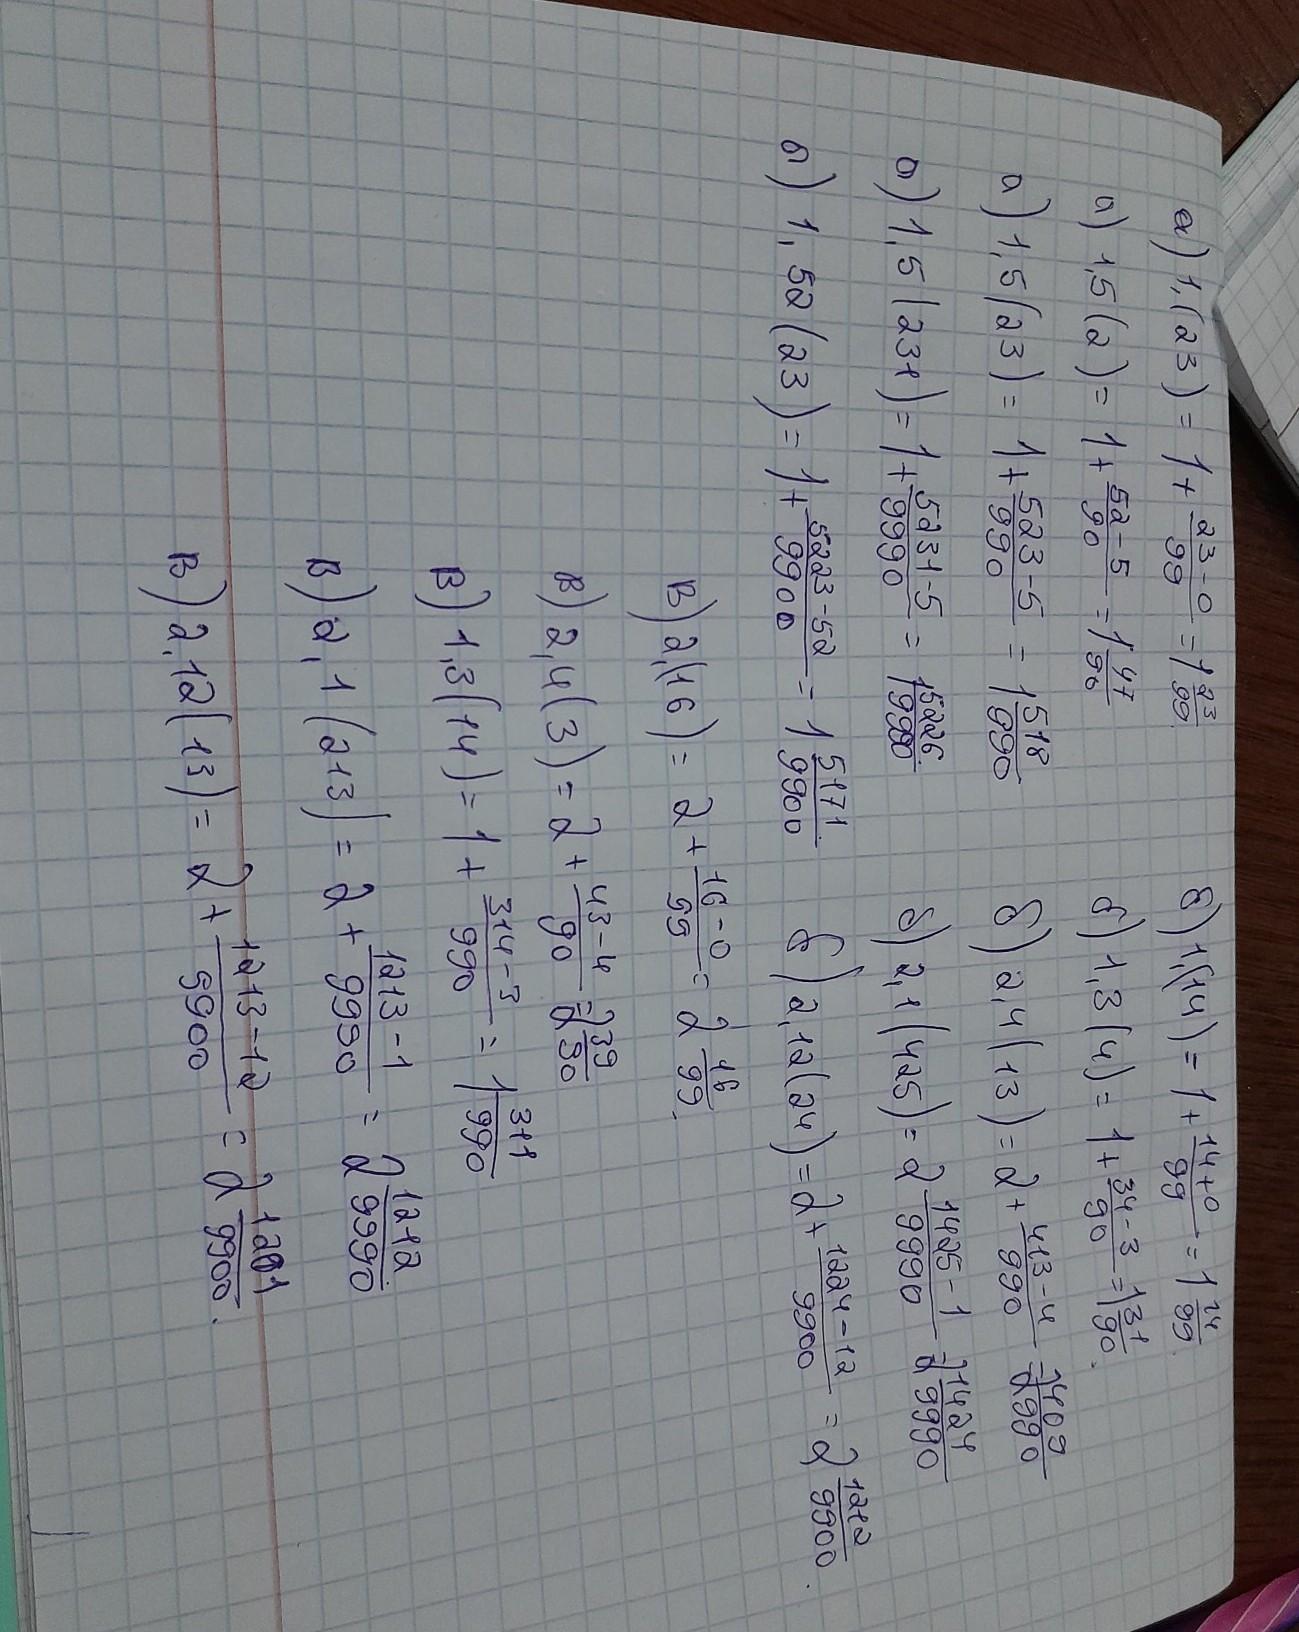 а) 1,(23) = 1 + 23-0/99 = 1 23/99.
а) 1,5(2) = 1 + 52-5/90 = 1 47/90
а) 1,5(23) = 1 + 523-5/990 = 1 518/990.
а) 1,5(231) = 1 + 5231-5/9990 = 1 5226/9990.
а) 1,52(23) = 1 + 5223-52/9900 = 1 5171/9900.
б) 1,(14) = 1 + 14+0/99 = 1 14/99.
б) 1,3(4) = 1 + 34-3/90 = 1 31/90.
б) 2,4(13) = 2 + 413-4/990 = 2 409/990
б) 2,1(425) = 2 1425-1/9990 = 2 1424/9990
б) 2,12(24) = 2 + 1224-12/9900 = 2 1212/9900.
в) 2,(16) = 2 + 16-0/99 = 2 16/99.
в) 2,4(3) = 2 + 43-4/90 = 2 39/90
в) 1,3(14) = 1 + 314-3/990 = 1 311/990
в) 2,1(213) = 2 + 1213-1/9990 = 2 1212/9990.
в) 2,12(13) = 2 + 1213-12/9900 = 2 1201/9900.